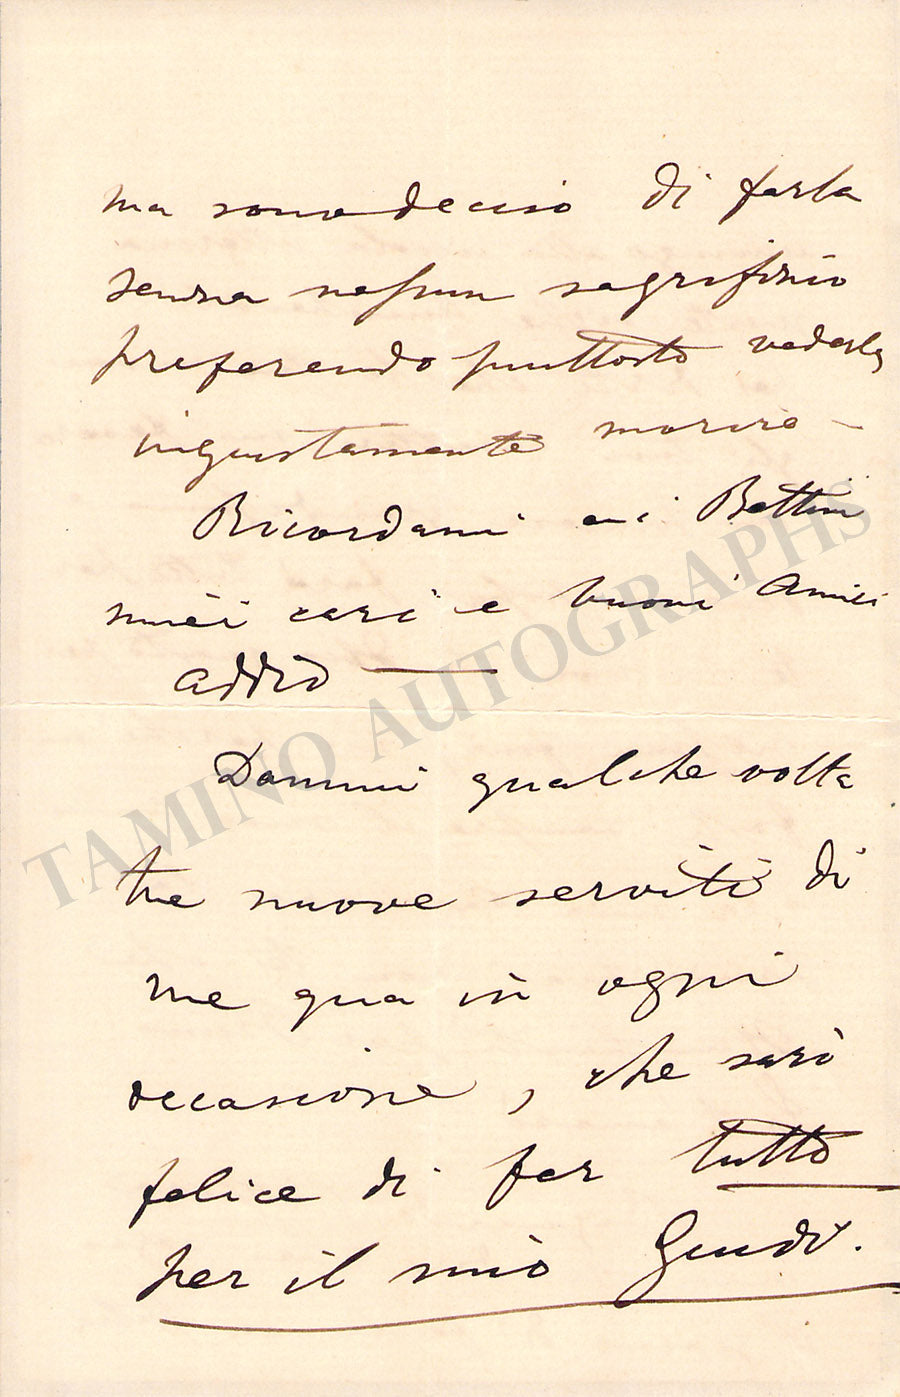 ma sono deciso di farla
senza nessun sagrifizio
preferendo piuttosto vederla
ingiustamente morire –
Ricordami ai Bettini
miei cari e buoni amici
addio —
Dammi qualche volta
tue nuove serviti di
me qua in ogni
occasione, che sarò
felice di far tutto
per il mio
TAMINO AUTOGRAPHS